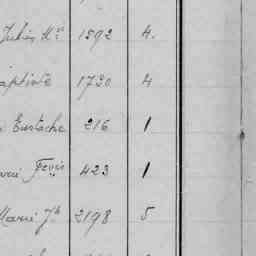 Julien Mie 1592 4.
aptiste 1730 4
Eustache 216 1
423 1
Marie Jh 2198 5